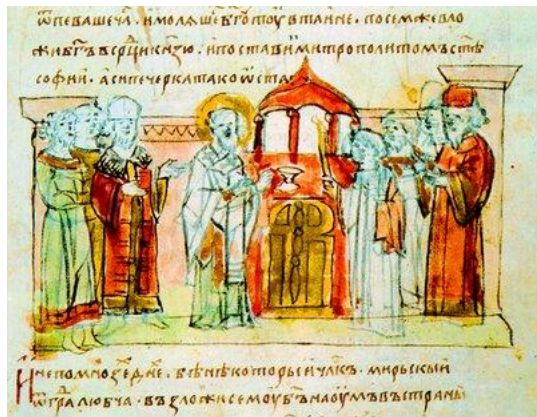 ѿпеваше ча҇ . и молѧше бг҃а тоу втаине . посем же вло
жи бг҃ъ в срд҃ци кн҃зю . и постави митрополитомъ ст҃ѣ
софии . а си печерка тако ѿста
И не по мнозе҇ дн҃е . бѣ нѣкоторыеи чл҃къ . мирьскыи
ѿ гра҇ любча . възложи семоу бъ҃ на оумъ въ страны